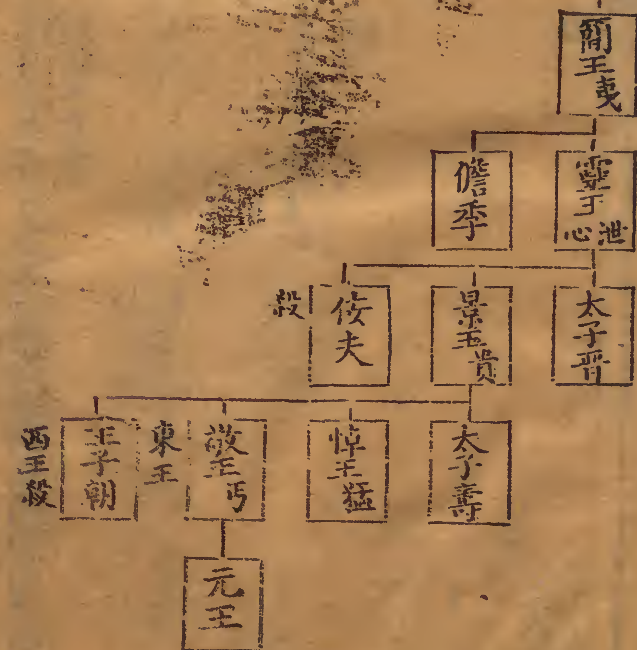 簡王夷
靈王泄心
儋季
太子晋
景王貴
佞夫
殺
太子壽
悼王猛
敬王丐
東王
王子朝
西王殺
元王